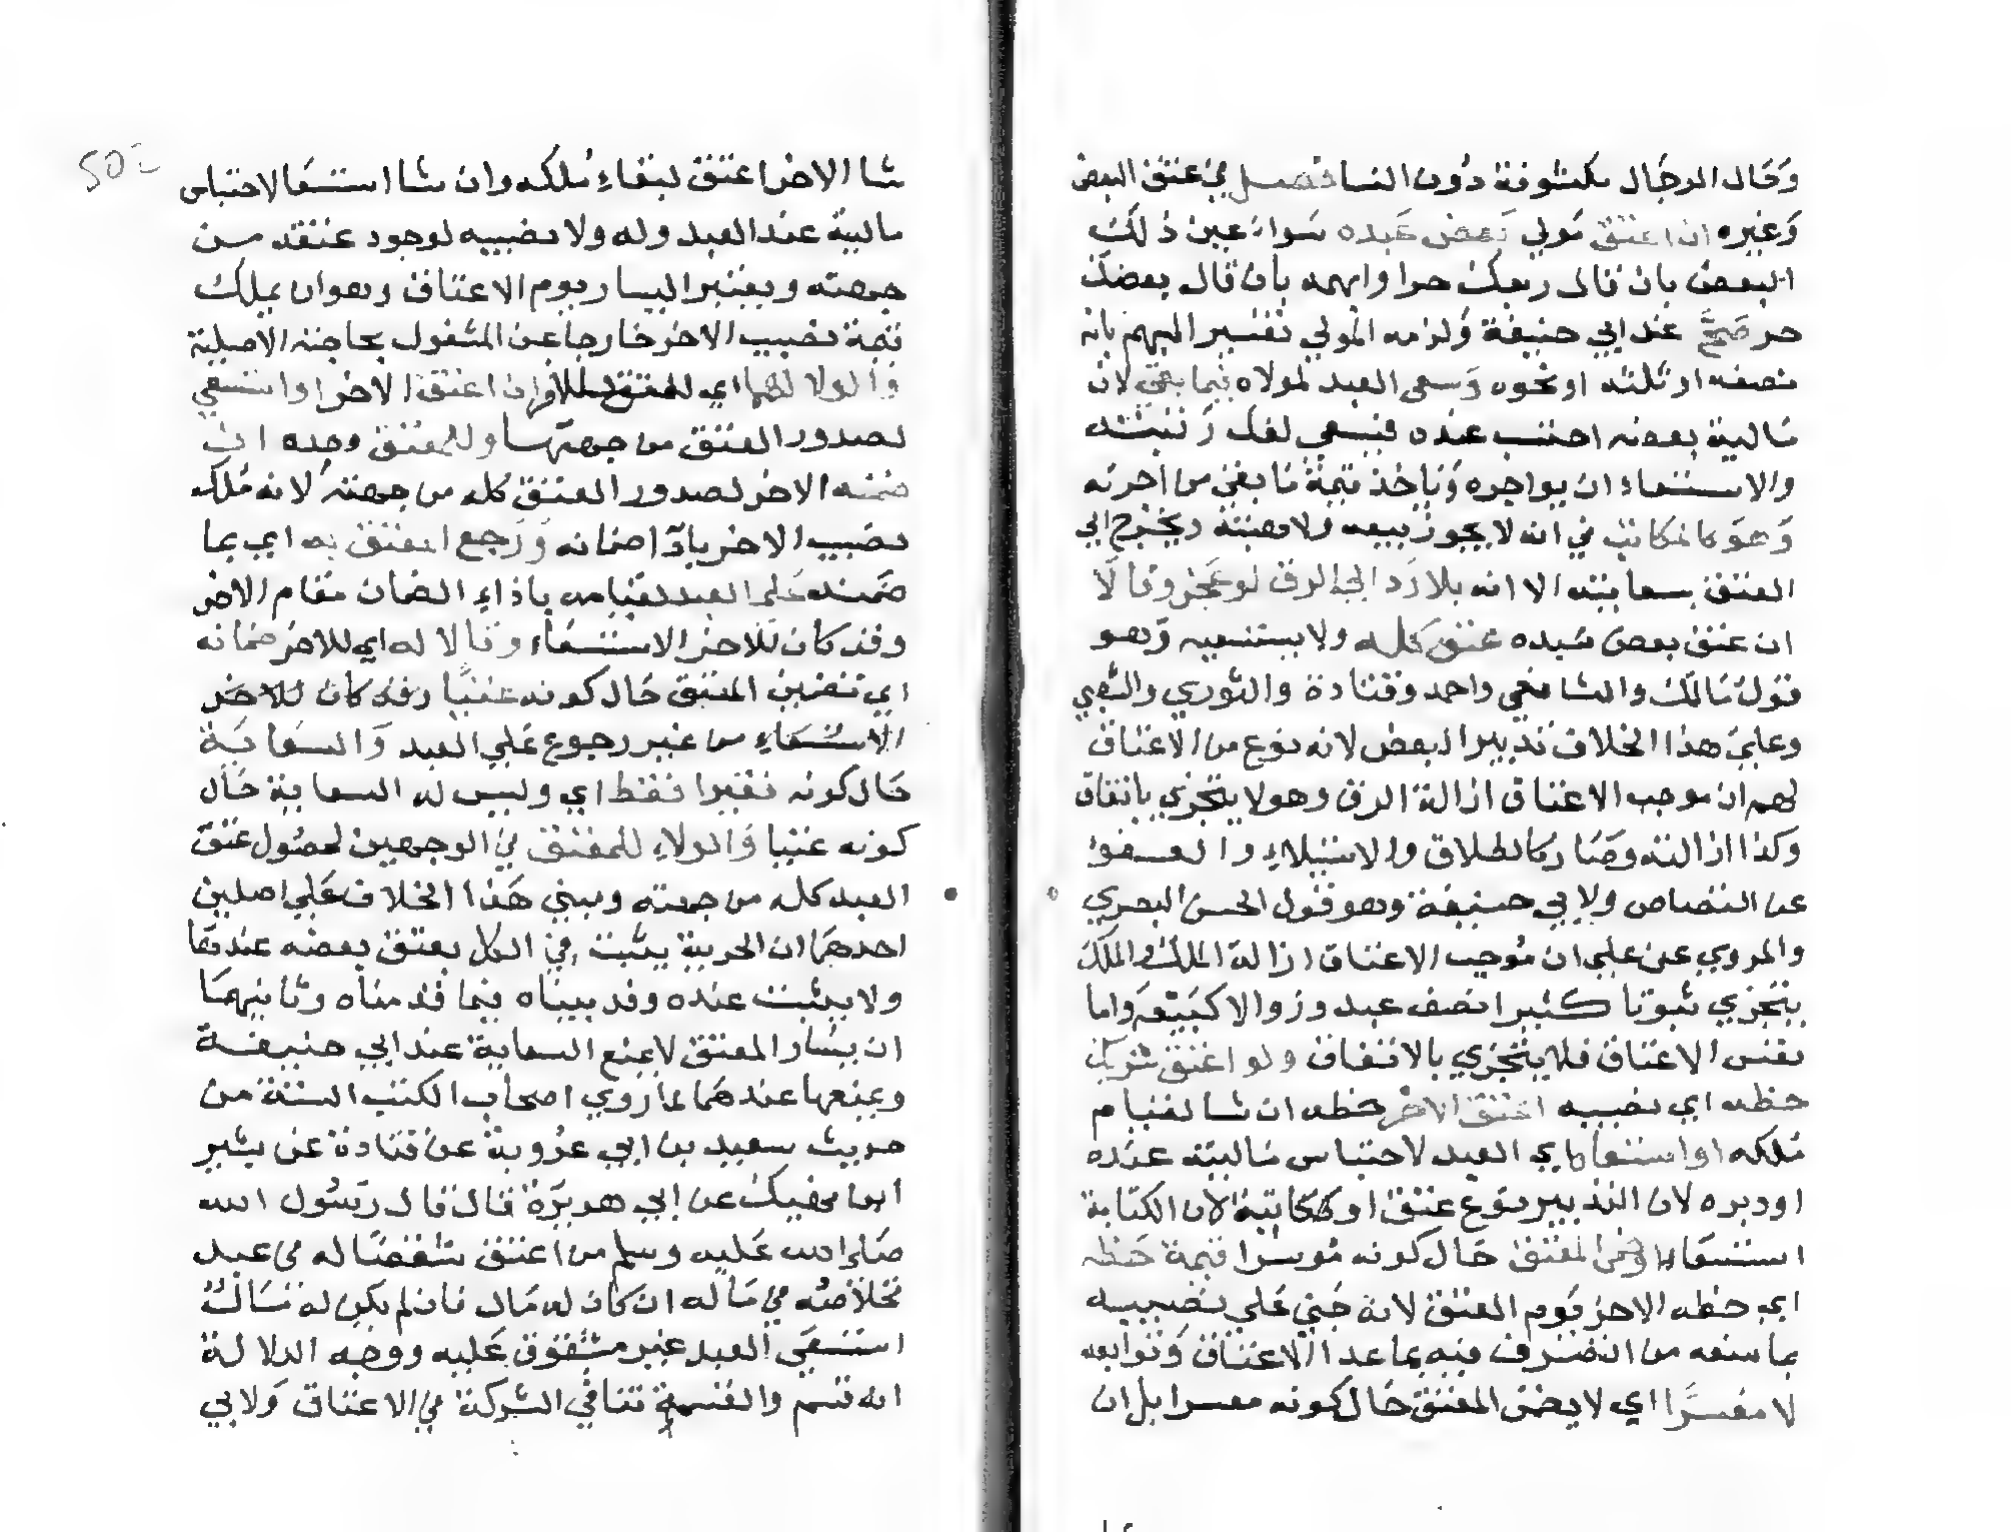 وحال الرجال مكشوفة دون النسا فصل في عتق البعض
وغيره ان اعتق مولي بعض عبده سواء عين ذلك
البعض بان قال ربعك حر او ابهمه بان قال بعضك
حر صح عند ابي حنيفة ولزمه المولي تفسير المبهم بانه
نصفه او ثلثه او نحوه وسعي العبد لمولاه فيما بقي لان
مالية بعضه احتبست عنده فيسعي لفك رقبته
والاستسعاء ان يواجره وياخذ قيمة ما بقي من اجرته
وهو كالمكاتب في انه لا يجوز بيعه ولا هبته ويخرج الي
العتق بسعايته الا انه بلا رد الي الرق لو عجز وقالا
ان عتق بعض سيده عتق كله ولا يستسعيه وهو
قول مالك والشافعي واحمد وقتادة والثوري والشعبي
وعلي هذا الخلاف تدبير البعض لانه نوع من الاعتاق
لهم ان موجب الاعتاق ازالة الرق وهو لا يتجزي باتفاق
وكذا ازالته وصار كالطلاق والاستيلاء والعفو
عن القصاص ولابي حنيفة وهو قول الحسن البصري
والمروي عن علي ان موجب الاعتاق ازالة الملك والملك
يتجزي ثبوتا كثيرا نصف عبد وزوالا كبيعه واما
نفس الاعتاق فلا يتجزي بالاتفاق ولو اعتق شريك
حظه اي نصيبه اعتق الاخر حظه ان شا لقيام
ملكه او استسعا اي العبد لاحتباس مالية عنده
او دبره لان التدبير نوع عتق او كاتبه لان الكتابة
استسعاء او ضمن المعتق حال كونه موسرا قيمة حظه
اي حظه الاخر يوم العتق لانه جني علي نصيبه
بما منعه من التصرف فيه بما عدا الاعتاق وتوابعه
لا معسرا اي لا يضمن المعتق حال كونه معسرا بل ان
شا الاخر اعتق لبقاء ملكه وان شا استسعا لاحتباس
مالية عند العبد وله ولا نصيبه لوجود عتقه من
جهته ويعتبر اليسار يوم الاعتاق وهو ان يملك
قيمة نصيب الاخر خارجا عن المشغول بحاجته الاصلية
والولا لهما اي للمعتق الاول ان اعتق الاخر او استسعي
لصدور العتق من جهتهما وللمعتق وحده ان
ضمنه الاخر لصدور العتق كله من جهته لانه ملك
نصيب الاخر باداء ضمانه ورجع المعتق به اي بما
ضمنه علي العبد لقيامه باداء الضمان مقام الاخر
وقد كان للاخر الاستسعاء وقالا له اي للاخر ضمانه
اي تضمين المعتق حال كونه غنيا وقد كان للاخر
الاستسعاء من غير رجوع علي العبد والسعاية
حال كونه فقيرا فقط اي وليس له السعاية حال
كونه غنيا والولاء للمعتق في الوجهين لحصول عتق
العبد كله من جهته ومبني هذا الخلاف علي اصلين
احدهما ان الحرية يثبت في الكل بعتق بعضه عندهما
ولا يثبت عنده وقد بيناه فيما قدمناه وثانيهما
ان يسار المعتق لا يمنع السعاية عند ابي حنيفة
ويمنعها عندهما لما روي اصحاب الكتب الستة من
حديث سعيد بن ابي عروبة عن قتادة عن بشير
ابن نهيك عن ابي هريرة قال قال رسول الله
صلي الله عليه وسلم من اعتق شقصا له في عبد
فخلاصه في ماله ان كان له مال فان لم يكن له مال
استسعي العبد غير مشقوق عليه ووجه الدلالة
انه قسم والقسمة تنافي الشركة في الاعتاق ولابي